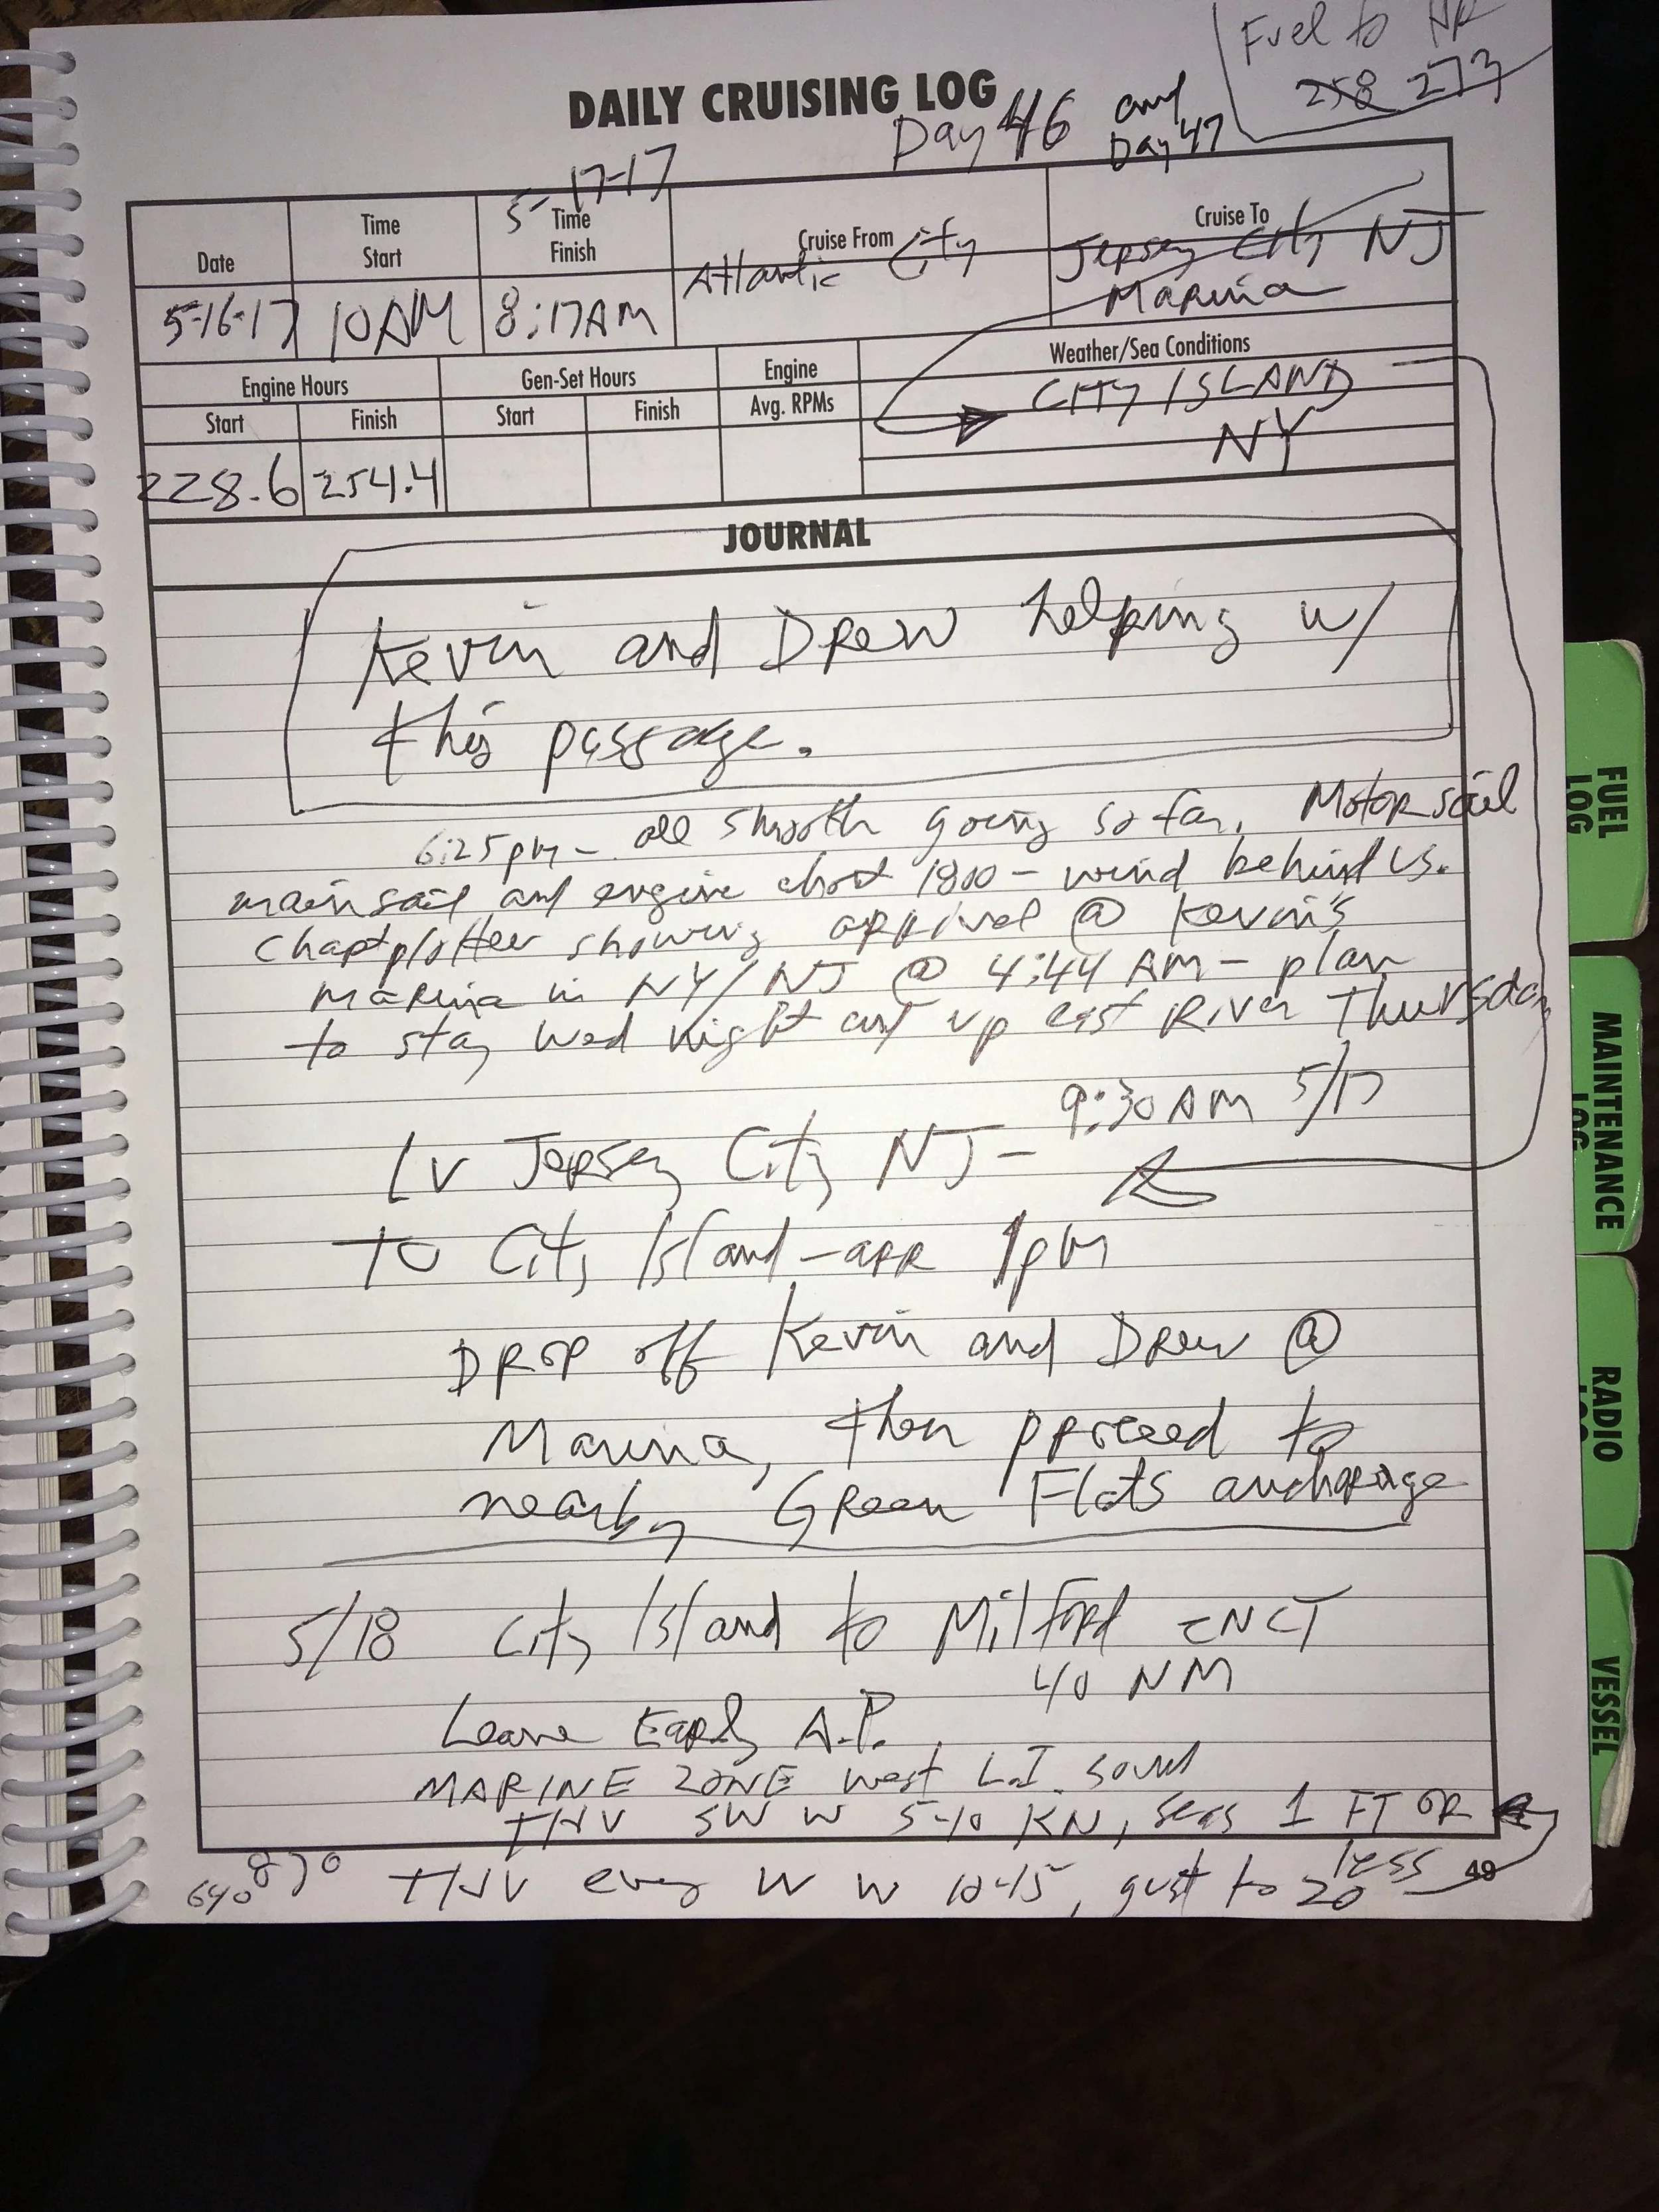 Fuel to HR
258 273
DAILY CRUISING LOG
Day 46 and
Day 47
5-17-17
Date
Time
Start
Time
Finish
Cruise From
Cruise To
5-16-17
10AM
8:17AM
Atlantic City
Jersey City NJ
Marina
Engine Hours
Gen-Set Hours
Engine
Avg. RPMs
Weather/Sea Conditions
Start
Finish
Start
Finish
CITY ISLAND
NY
228.6
254.4
JOURNAL
Kevin and Drew helping w/
this passage.
6:25pm - all smooth going so far. Motorsail
mainsail and engine about 1800 - wind behind us.
Chartplotter showing arrival @ Kevin's
Marina in NY/NJ @ 4:44 AM - plan
to stay Wed night and up east River Thursday
9:30AM 5/17
Lv Jersey City NJ -
To City Island - arr 1pm
Drop off Kevin and Drew @
Marina, then proceed to
nearby Green Flats anchorage
5/18 City Island to Milford CT
40 NM
Leave Early A.P.
MARINE ZONE West L.I. Sound
THU SW W 5-10 KN, seas 1 FT OR
less
THU eve W 10-15, gust to 20
64° 87°
49
FUEL
LOG
MAINTENANCE
LOG
RADIO
LOG
VESSEL